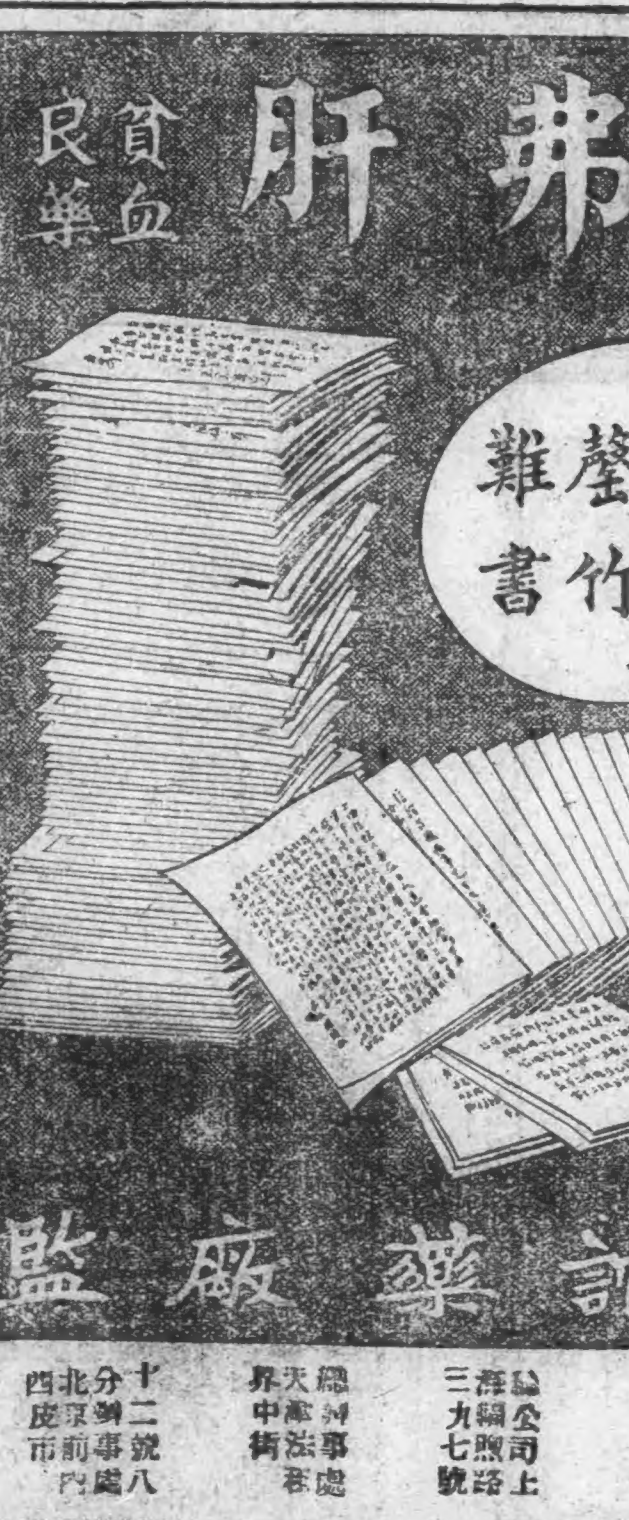 弗肝
貧血
良藥
罄竹
難書
藥廠監
總公司上
海福煦路
三九七號
總辦事處
天津法租
界中街
十二號八
分辦事處
北京前門
西皮市